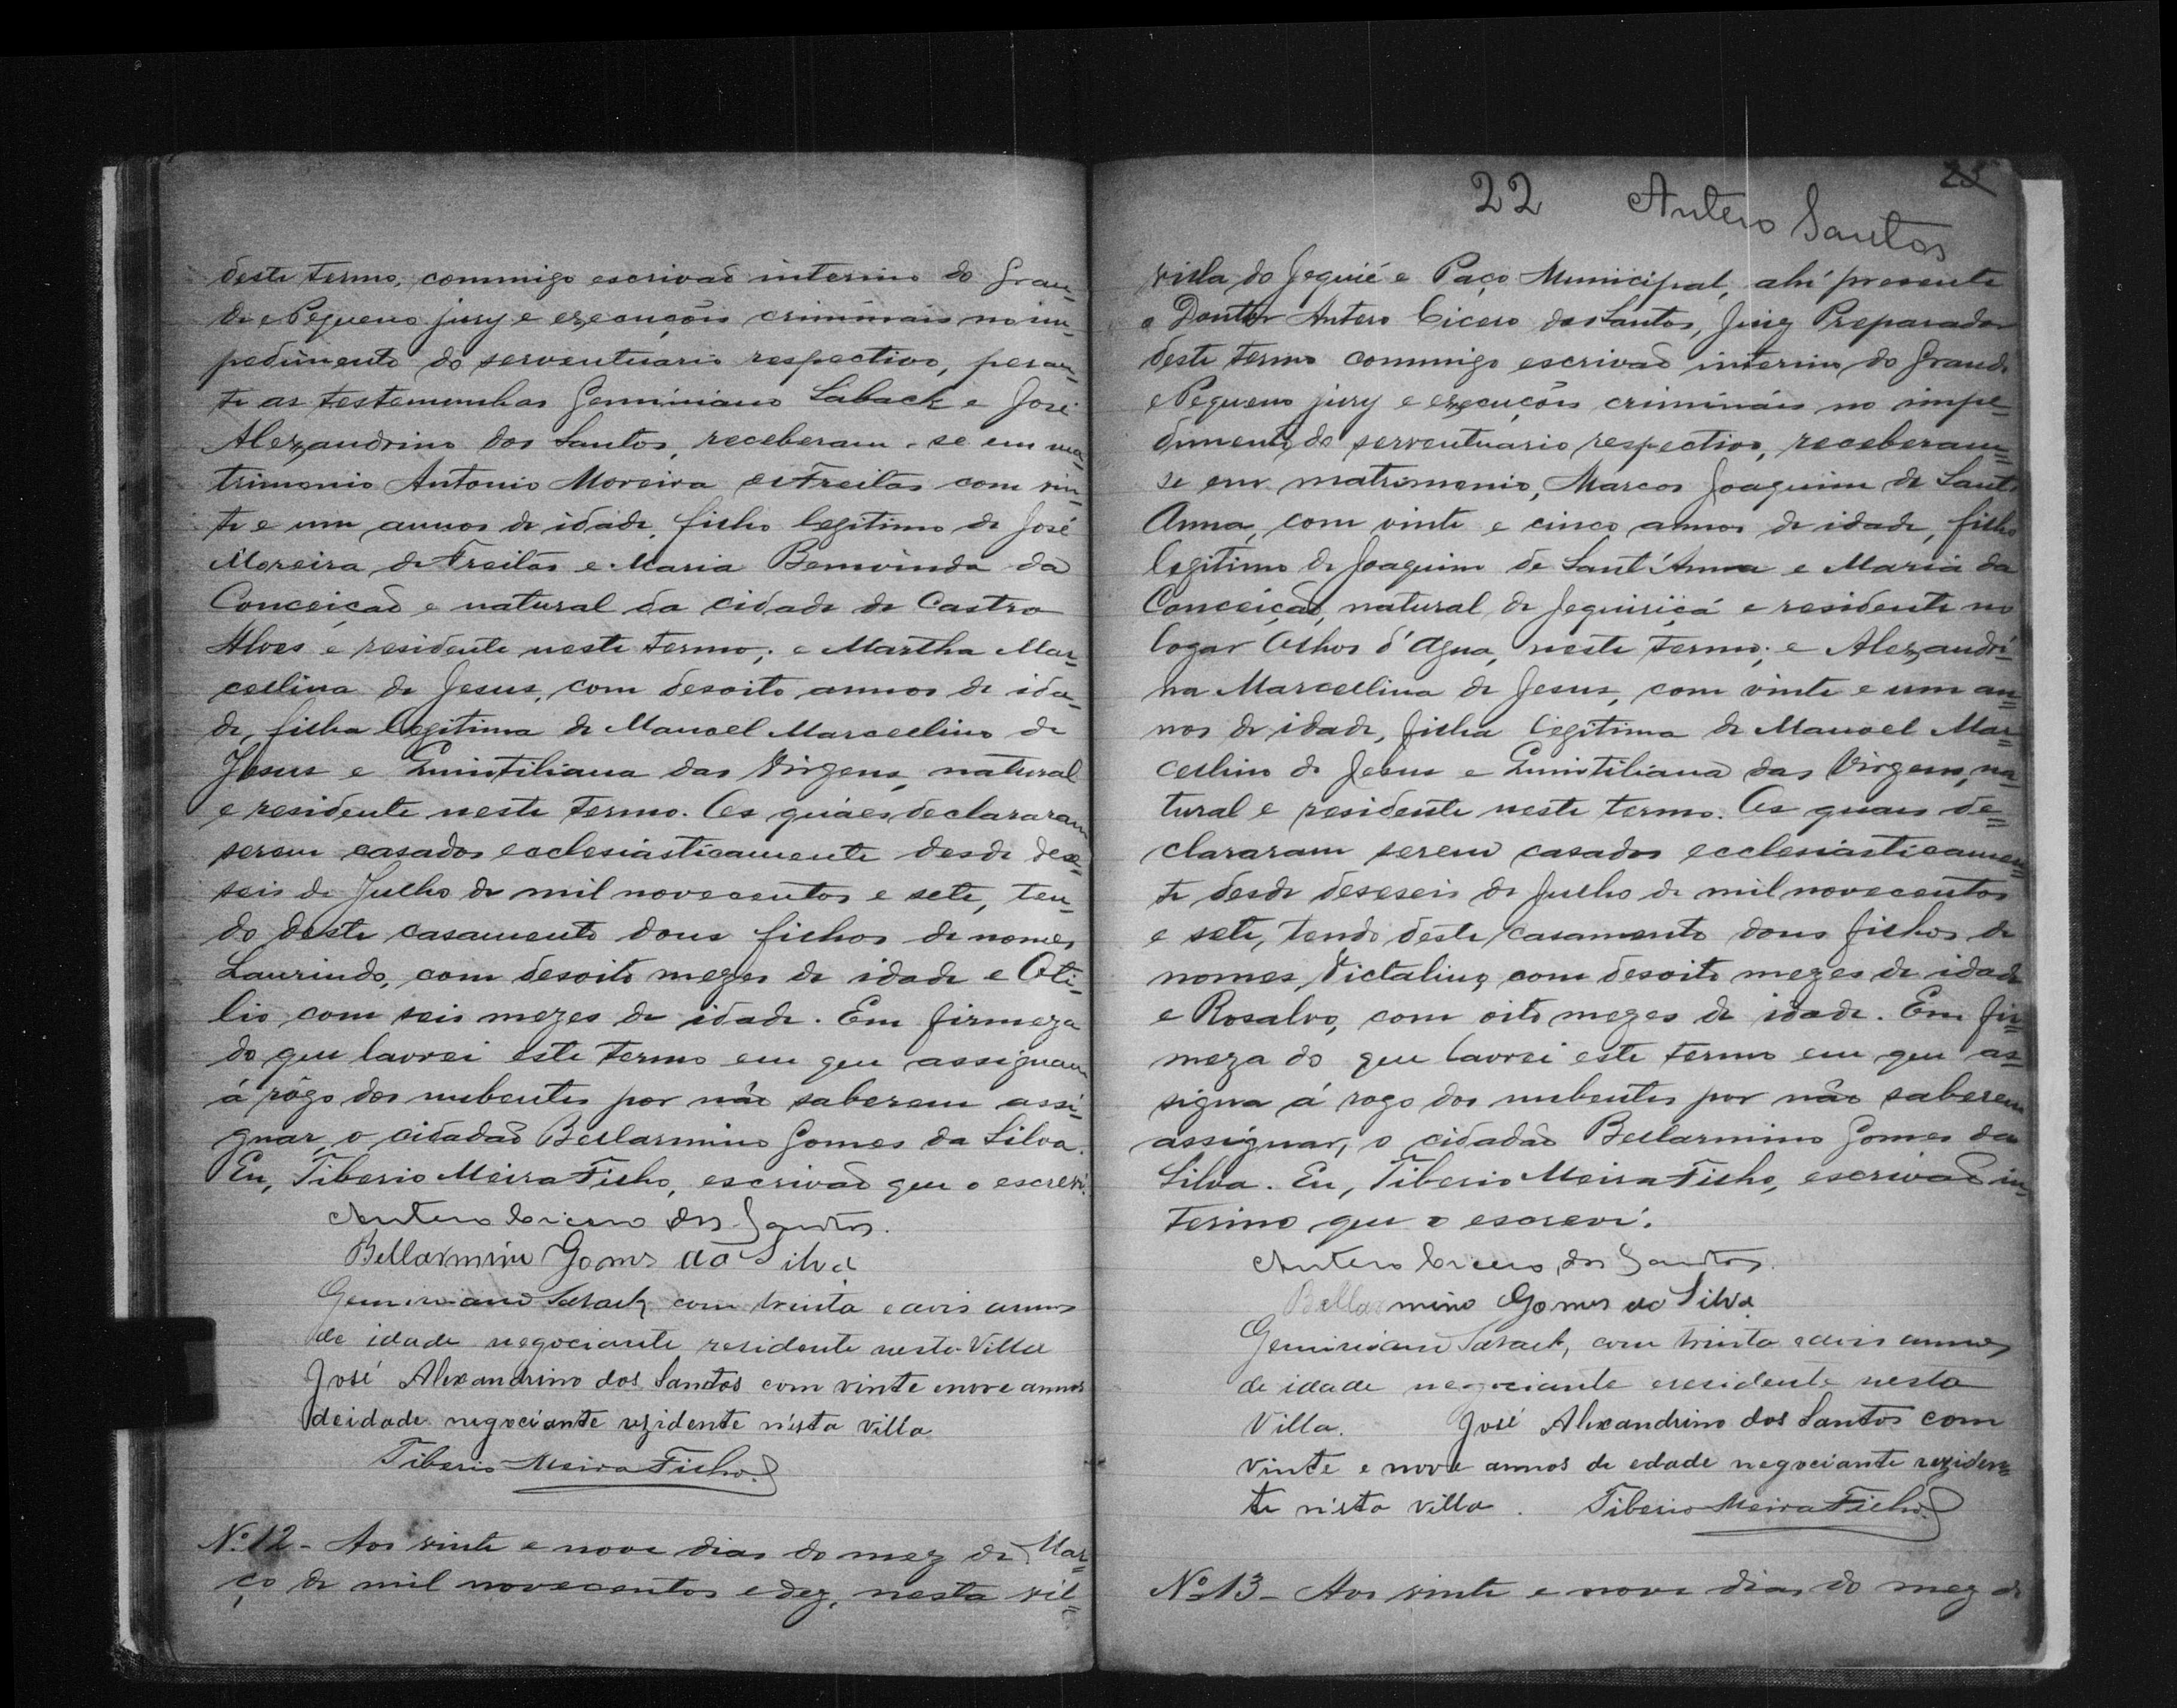 deste termo, commigo escrivaõ interino do Gran-
de e Pequeno jury e execuções criminaes no im-
pedimento do serventuario respectivo, peran-
te as testemunhas Geminiano Saback e José
Alexandrino dos Santos, receberam-se em ma-
trimonio Antonio Moreira de Freitas com vin-
te e um annos de idade, filho legitimo de José
Moreira de Freitas e Maria Bemvinda da
Conceiçaõ e natural da cidade de Castro
Alves e residente neste termo; e Martha Mar-
cellina de Jesus, com desoito annos de ida-
de, filha legitima de Manoel Marcellino de
Jesus e Quintiliana das Virgens, natural
e residente neste termo. Os quaes declararam
serem casados ecclesiasticamente desde dese-
seis de Julho de mil novecentos e sete, ten-
do deste casamento dous filhos de nomes
Laurindo, com desoito mezes de idade e Oti-
lio com seis mezes de idade. Em firmeza
do que lavrei este termo em que assignam
á rôgo dos nubentes por não saberem assi-
gnar, o cidadaõ Bellarmino Gomes da Silva.
Eu, Tiberio Meira Filho, escrivaõ que o escrevi.
Antero Cicero dos Santos.
Bellarmino Gomes da Silva
Geminiano Saback com trinta e dois annos
de idade negociante residente nesta Villa
José Alexandrino dos Santos com vinte e nove annos
de idade negociante rezidente n'esta villa
Tiberio Meira Filho.
Nº 12 - Aos vinte e nove dias do mez de Mar-
ço de mil novecentos e dez, nesta vil-
22 Antero Santos
23
villa do Jequié e Paço Municipal, ahi presente
o Doutor Antero Cicero dos Santos, Juiz Preparador
deste termo commigo escrivaõ interino do Grande
e Pequeno jury e execuções criminaes no impe-
dimento do serventuario respectivo, receberam-
se em matrimonio, Marcos Joaquim de Sant'
Anna, com vinte e cinco annos de idade, filho
legitimo de Joaquim de Sant'Anna e Maria da
Conceiçaõ, natural de Jequiriçá e residente no
logar Olhos d'Agua, neste termo; e Alexandri-
na Marcellina de Jesus, com vinte e um an-
nos de idade, filha legitima de Manoel Mar-
cellino de Jesus e Quintiliana das Virgens, na-
tural e residente neste termo. Os quaes de-
clararam serem casados ecclesiasticamen-
te desde deseseis de Julho de mil novecentos
e sete, tendo deste casamento dous filhos de
nomes, Victalino, com desoito mezes de idade
e Rosalvo, com oito mezes de idade. Em fir-
meza do que lavrei este termo em que as-
signa á rogo dos nubentes por não saberem
assignar, o cidadão Bellarmino Gomes da
Silva. Eu, Tiberio Meira Filho, escrivaõ in-
terino que o escrevi.
Antero Cicero dos Santos.
Bellarmino Gomes da Silva
Geminiano Saback, com trinta e dois annos
de idade negociante e residente nesta
Villa. José Alexandrino dos Santos com
vinte e nove annos de edade negociante reziden-
te n'esta villa. Tiberio Meira Filho.
Nº 13 - Aos vinte e nove dias do mez de